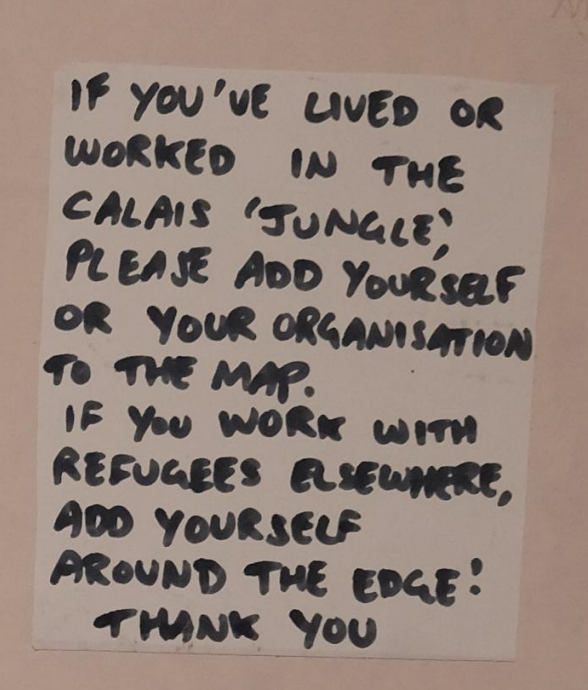 IF YOU'VE LIVED OR
WORKED IN THE
CALAIS 'JUNGLE',
PLEASE ADD YOURSELF
OR YOUR ORGANISATION
TO THE MAP.
IF YOU WORK WITH
REFUGEES ELSEWHERE,
ADD YOURSELF
AROUND THE EDGE!
THANK YOU